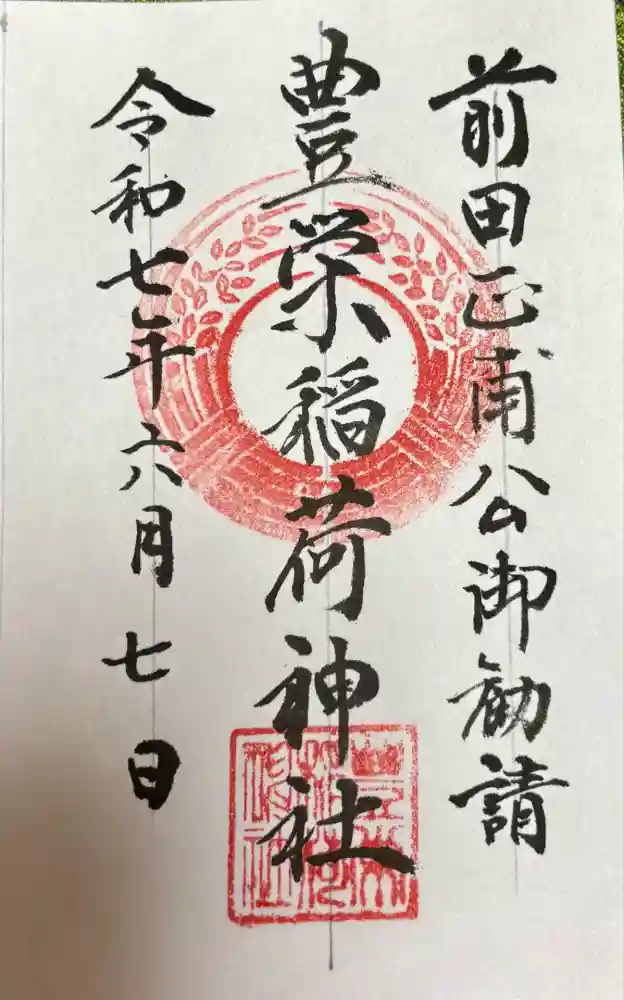 前田正甫公御勧請
豊栄稲荷神社
令和七年六月七日